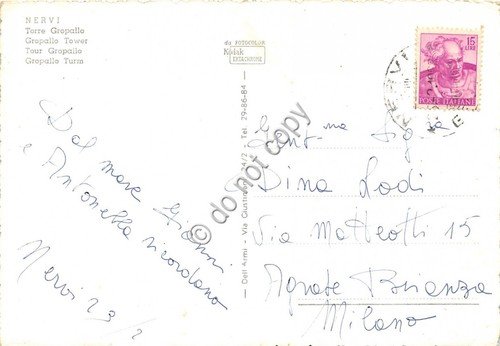 NERVI
Torre Gropallo
Gropallo Tower
Tour Gropallo
Gropallo Turm
da FOTOCOLOR
Kodak
EKTACHROME
15
LIRE
POSTE ITALIANE
NERVI
Dal mare Gianni
e Antonella ricordano
Nervi 23/7
Gent.ma Sig.ra
Dina Lodi
Via Matteotti 15
Agrate Brianza
Milano
Dell'Armi - Via Giustiniani 4/2 Tel. 29-86-84
© do not copy